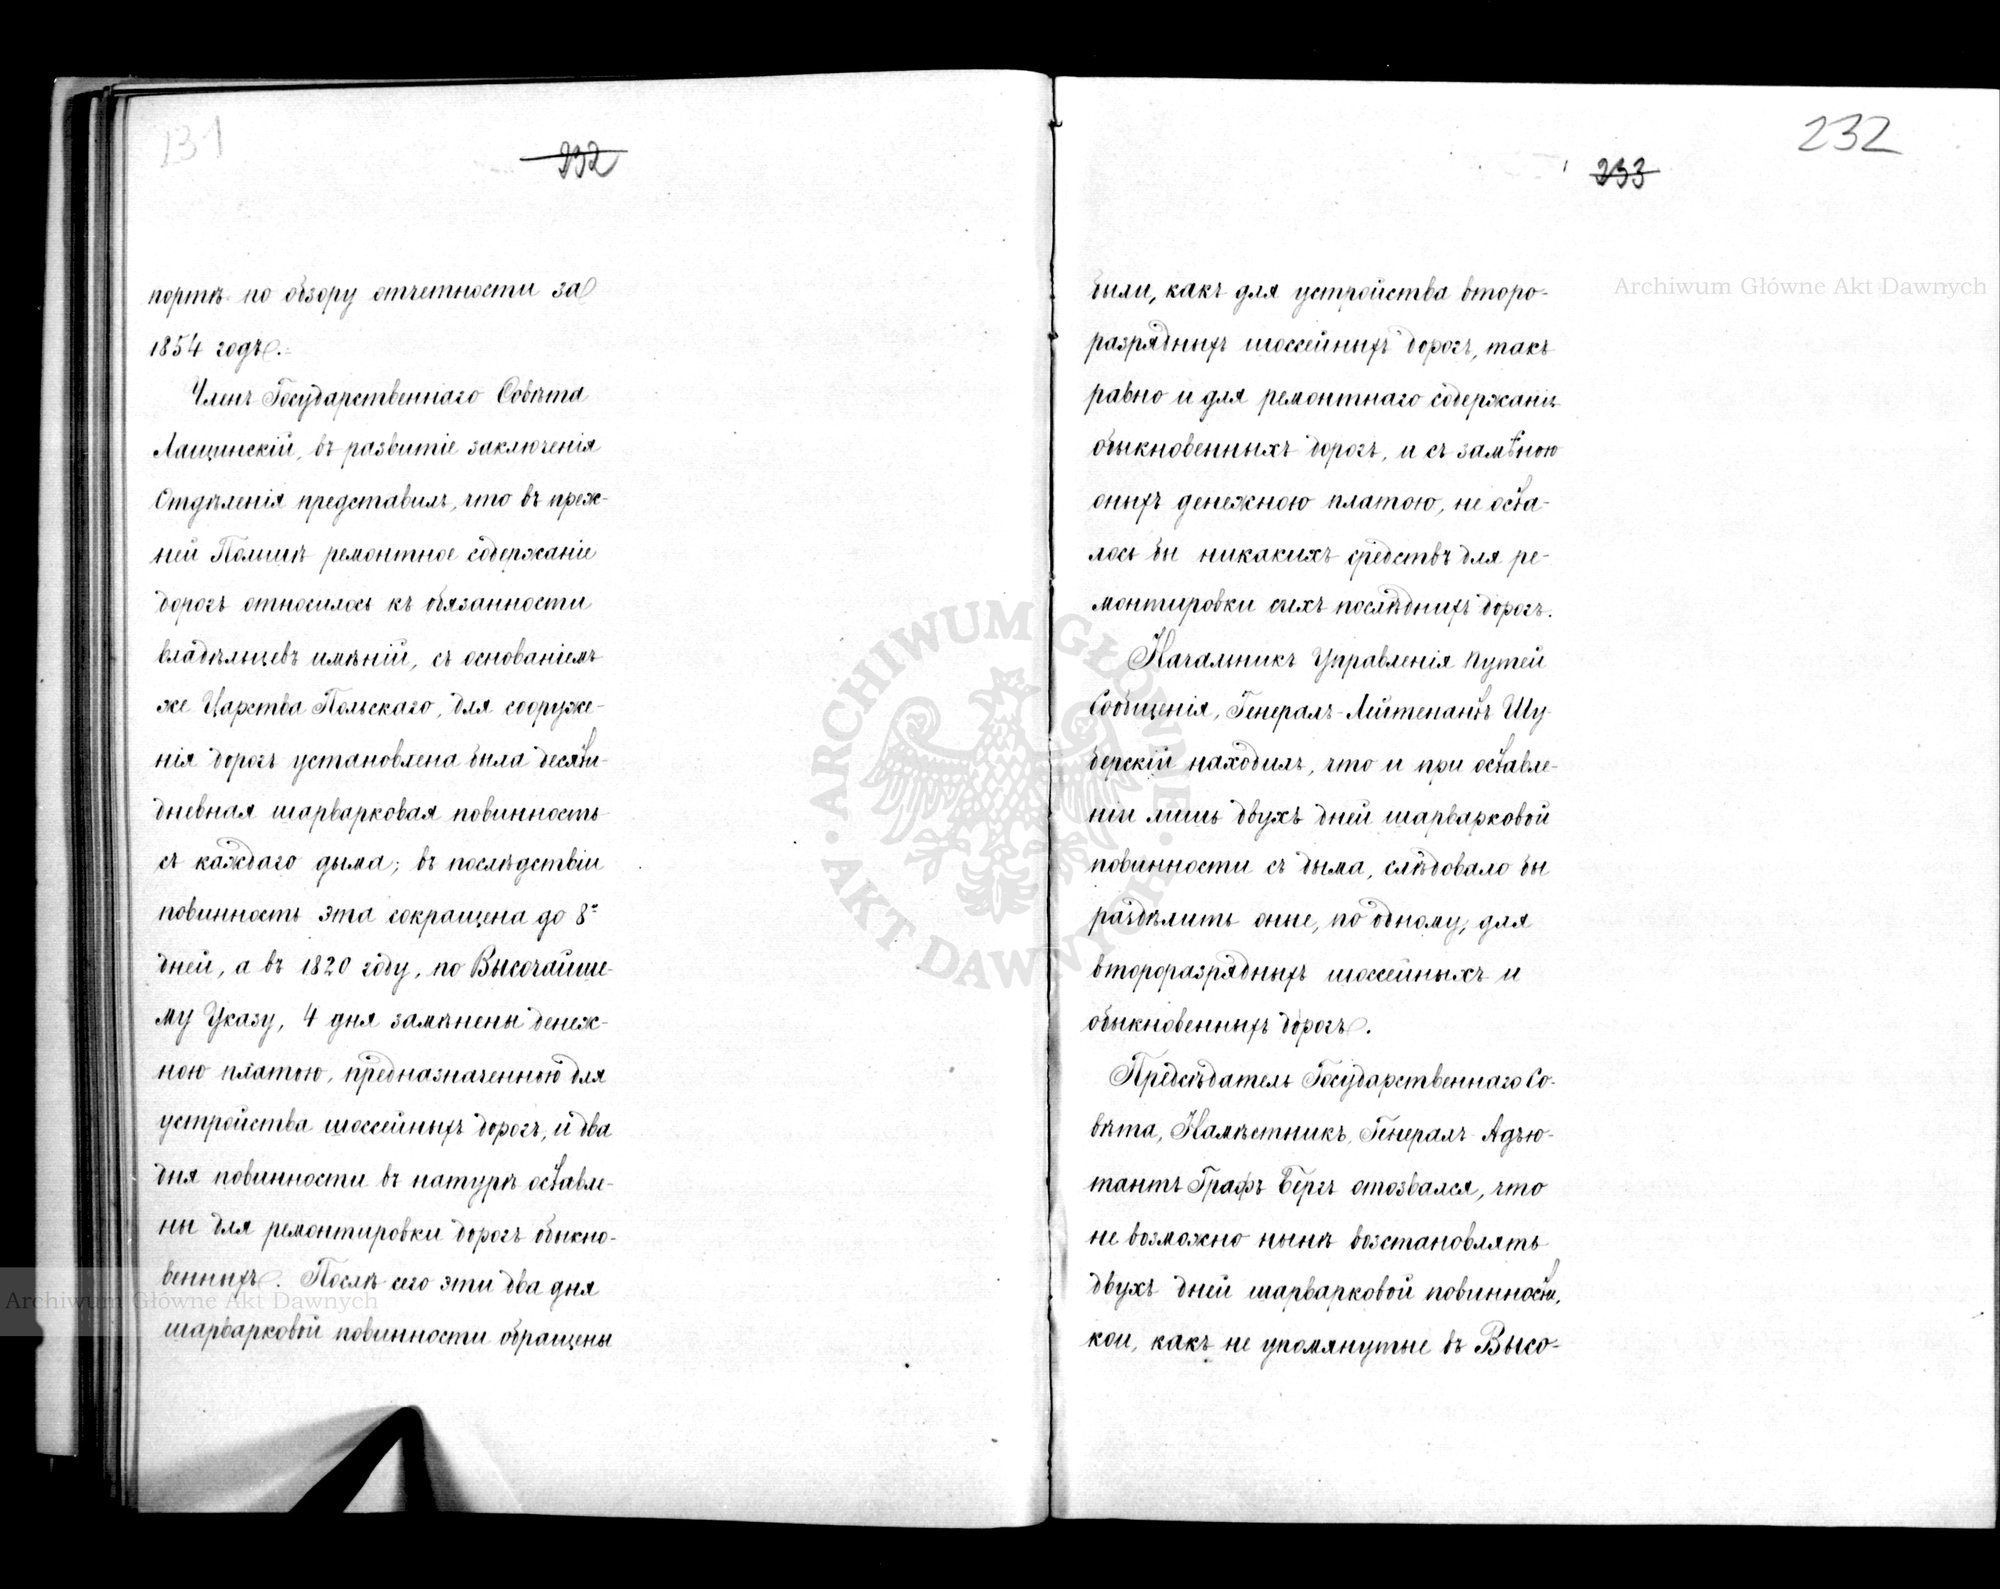 131
232
портѣ по обзору отчетности за
1854 годъ.
Членъ Государственнаго Совѣта
Лащинскій, въ развитіе заключенія
Отдѣленія представилъ, что въ преж-
ней Польшѣ ремонтное содержаніе
дорогъ относилось къ обязанности
владѣльцевъ имѣній, съ основаніемъ
же Царства Польскаго, для сооруже-
нія дорогъ установлена была десяти-
дневная шарварковая повинность
съ каждаго дыма; въ послѣдствіи
повинность эта сокращена до 8ᵐⁱ
дней, а въ 1820 году, по Высочайше-
му Указу, 4 дня замѣнены денеж-
ною платою, предназначенною для
устройства шоссейныхъ дорогъ, и два
дня повинности въ натурѣ оставле-
ны для ремонтировки дорогъ обыкно-
венныхъ. Послѣ сего эти два дня
шарварковой повинности обращены
232
233
были, какъ для устройства второ-
разрядныхъ шоссейныхъ дорогъ, такъ
равно и для ремонтнаго содержанія
обыкновенныхъ дорогъ, и съ замѣною
оныхъ денежною платою, не оста-
лось бы никакихъ средствъ для ре-
монтировки сихъ послѣднихъ дорогъ.
Начальникъ Управленія Путей
Сообщенія, Генералъ-Лейтенантъ Шу-
берскій находилъ, что и при оставле-
ніи лишь двухъ дней шарварковой
повинности съ дыма, слѣдовало бы
раздѣлить оные, по одному, для
второразрядныхъ шоссейныхъ и
обыкновенныхъ дорогъ.
Предсѣдатель Государственнаго Со-
вѣта, Намѣстникъ, Генералъ-Адъю-
тантъ Графъ Бергъ отозвался, что
не возможно нынѣ возстановлять
двухъ дней шарварковой повинности,
кои, какъ не упомянутые въ Высо-
Archiwum Główne Akt Dawnych
Archiwum Główne Akt Dawnych
ARCHIWUM GŁÓWNE · AKT DAWNYCH ·